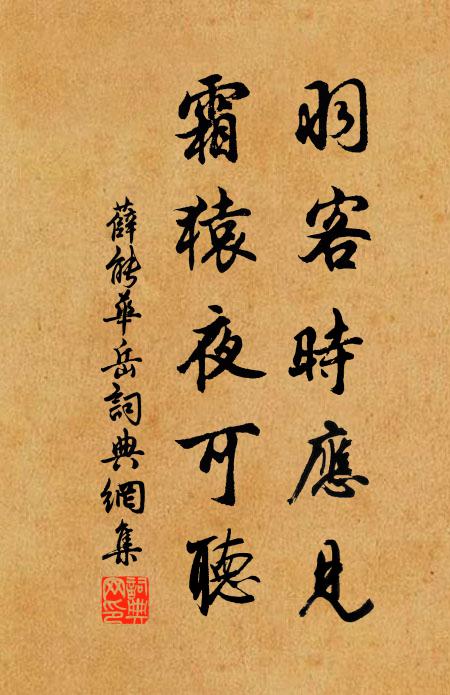 羽客時應見
霜猿夜可聽
薛能華岳詞典網集
詞典网印